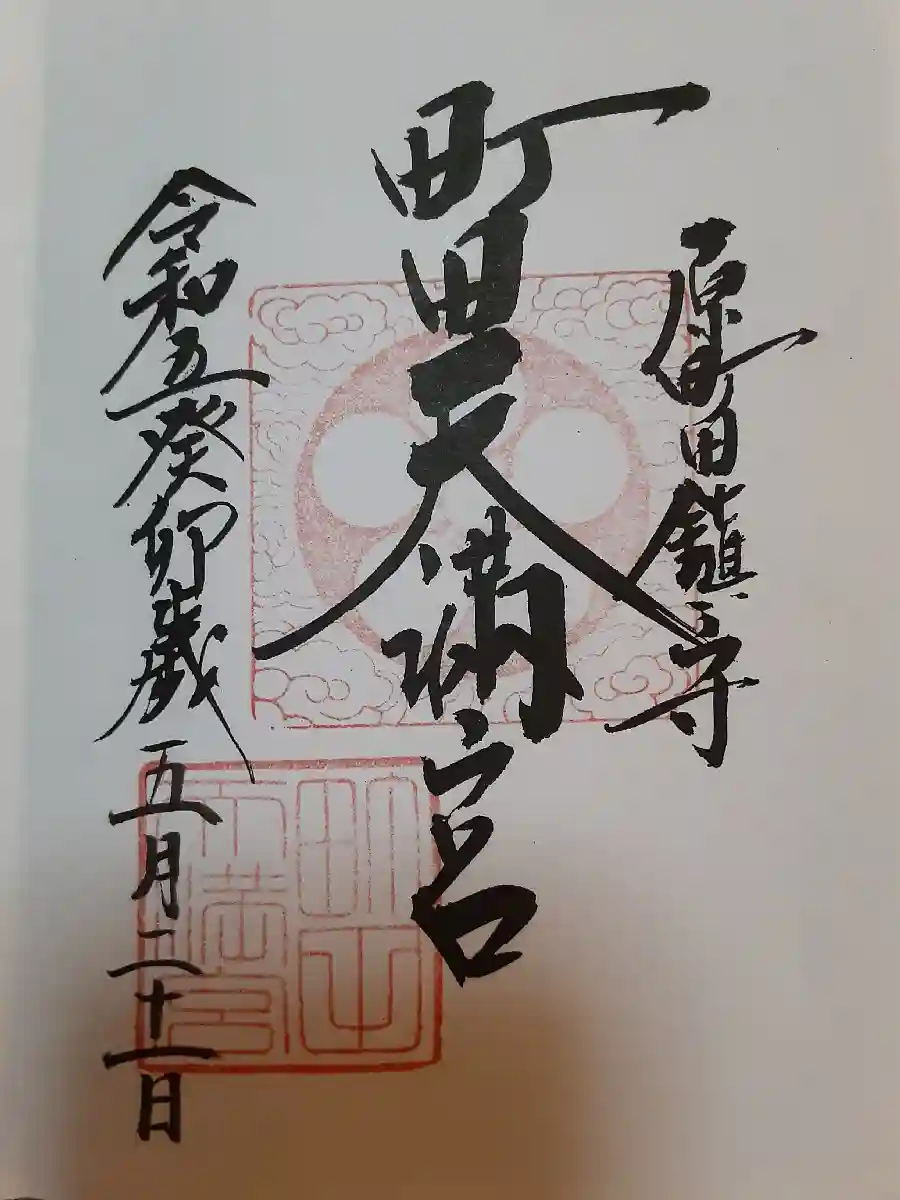 原町田鎮守
町田天満宮
令和五癸卯歳五月二十一日
町田天満宮